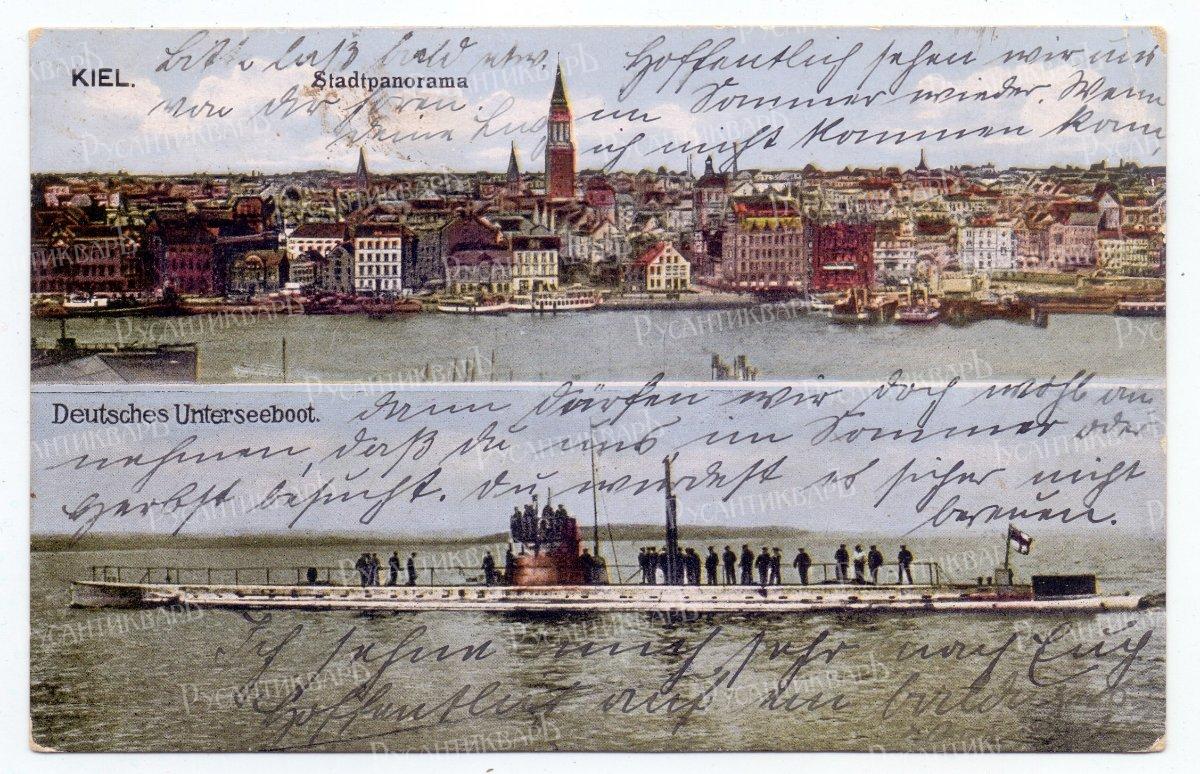 KIEL.
Stadtpanorama
Bitte laß bald etw.
von dir hören.
Hoffentlich sehen wir uns
im Sommer wieder. Wenn
ich nicht kommen kann,
Deutsches Unterseeboot.
dann dürfen wir doch wohl an
nehmen, daß du uns im Sommer oder
Herbst besuchst. Du würdest es sicher nicht
bereuen.
Ich sehne mich sehr nach Euch.
Hoffentlich auf ein baldiges
РусантикварЪ